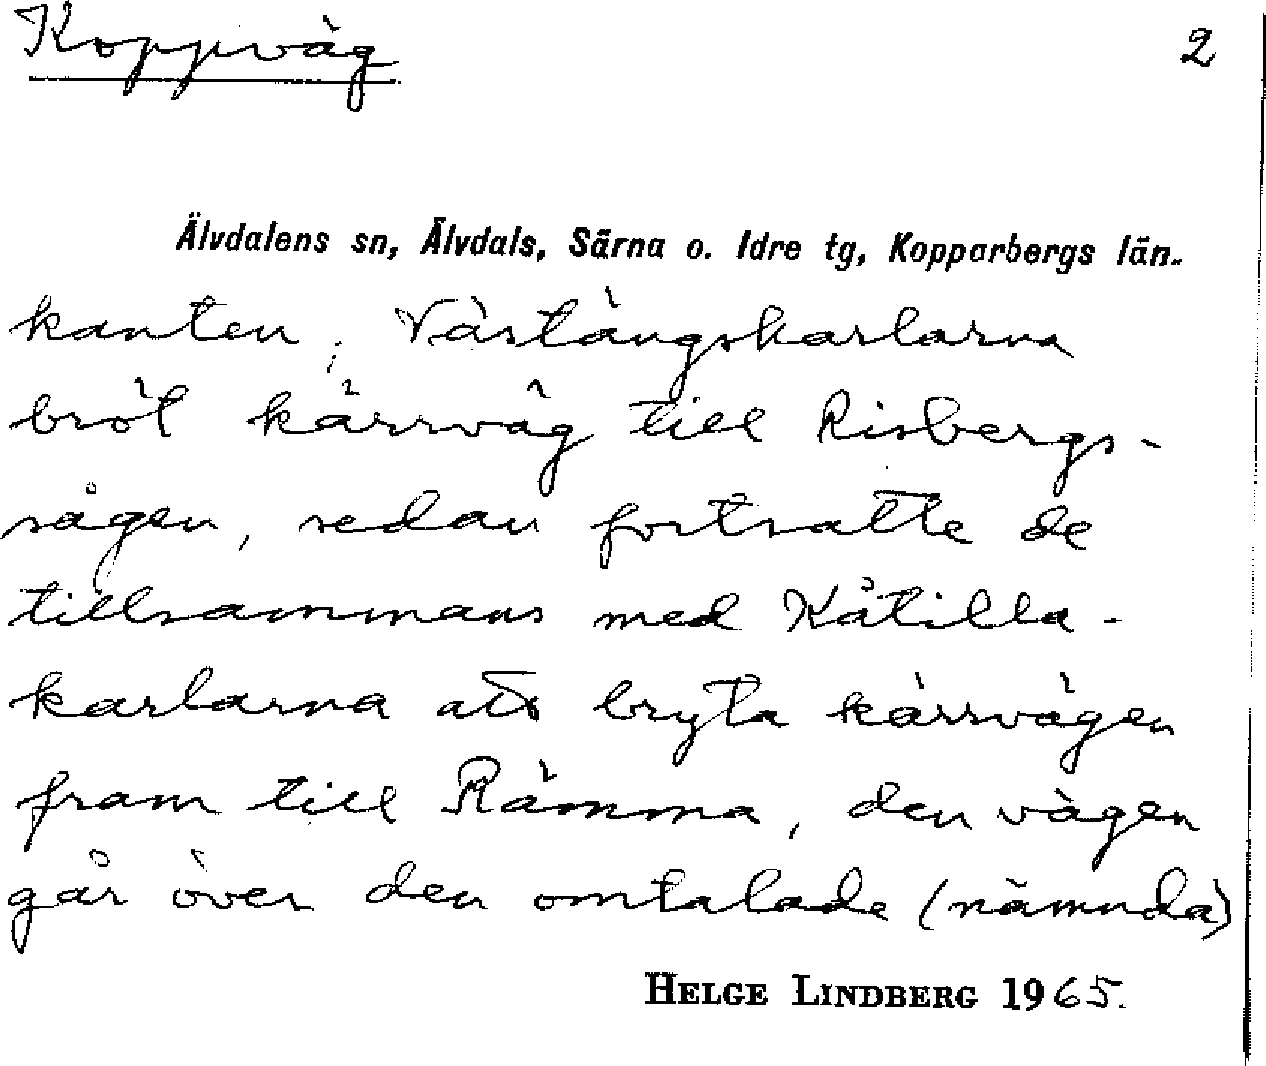 Koppväg
2
Älvdalens sn, Älvdals, Särna o. Idre tg, Kopparbergs län.
kanten; Västängskarlarna
bröt kärrväg till Risbergs-
sågen, sedan fortsatte de
tillsammans med Kåtilla-
karlarna att bryta kärrvägen
fram till Rämma, den vägen
går över den omtalade (nämnda)
HELGE LINDBERG 1965.